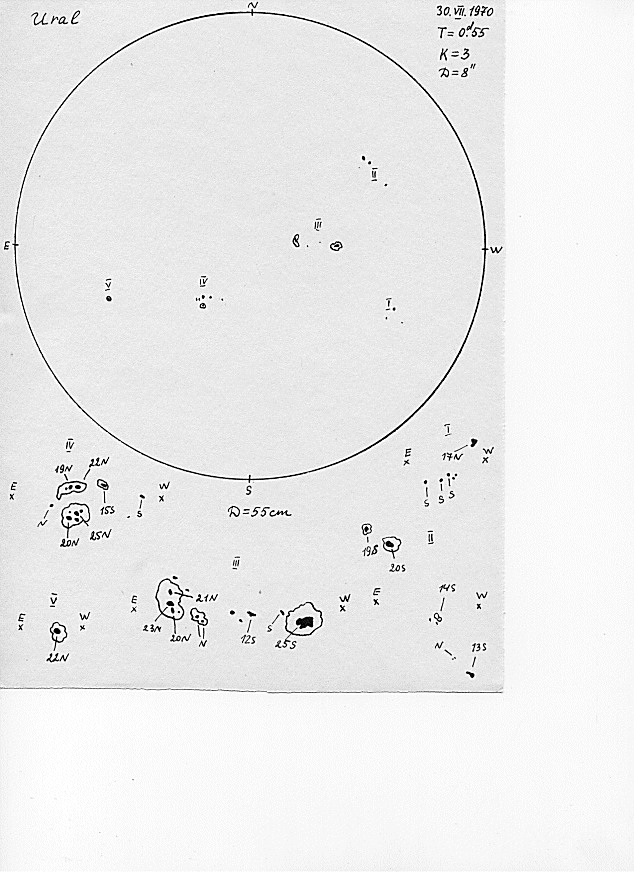 Ural
30.VII.1970
T=0.ᵈ55
K=3
D=8"
N
E
W
S
II
III
IV
V
I
D=55cm
IV
19N
22N
E
W
15S
S
N
20N
25N
I
E
W
17N
S
S
S
II
19S
20S
V
E
W
22N
III
E
W
21N
23N
20N
N
12S
S
25S
E
W
14S
N
13S